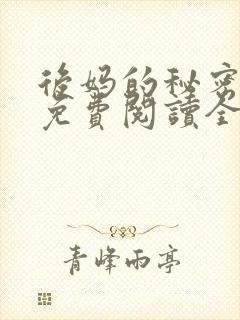 後妈的秘密
免費閱讀全
青峰雨亭